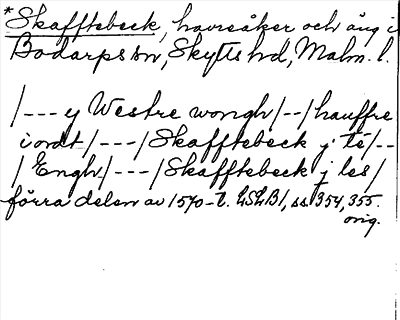 *Skafftebeck, havreåker och äng i
Bodarps sn, Skytts hd, Malm. l.
/--- y Westre wongh /--/ hauffre
iordt /---/ Skafftebeck j té /--
/ Engh /---/ Skafftebeck j les /
förra delen av 1570-t. LSLB1, ss 354, 355.
orig.